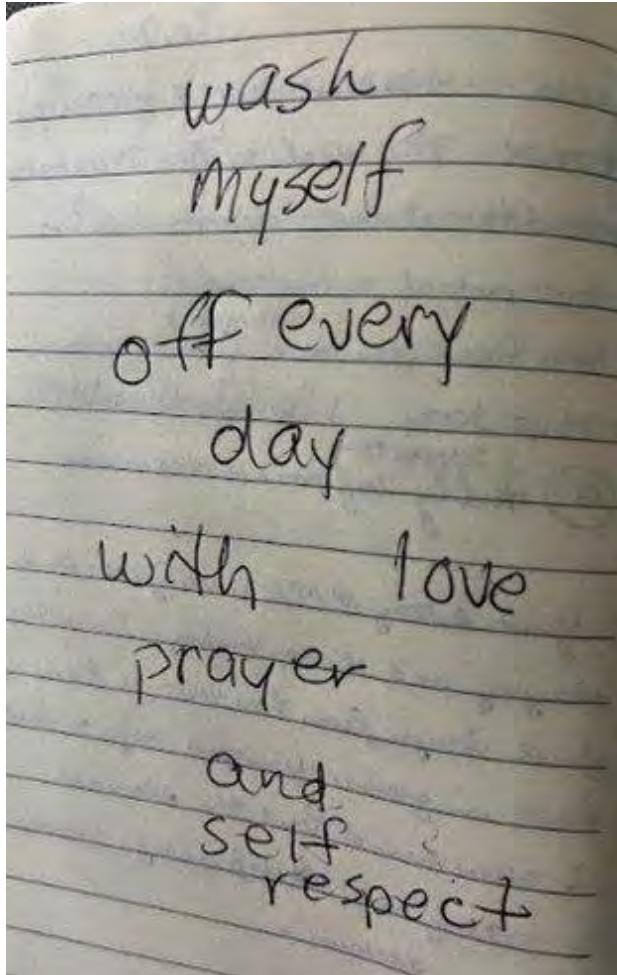 wash
myself
off every
day
with love
prayer
and
self
respect